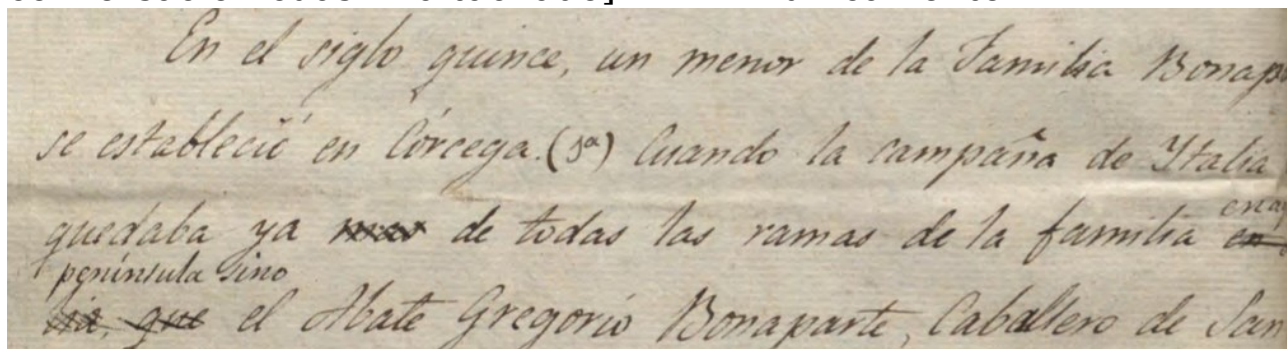 En el siglo quince, un menor de la Familia Bonap
se estableció en Córcega. (5ª) Cuando la campaña de Italia
quedaba ya de todas las ramas de la familia
península sino
el Abate Gregorio Bonaparte, Caballero de San